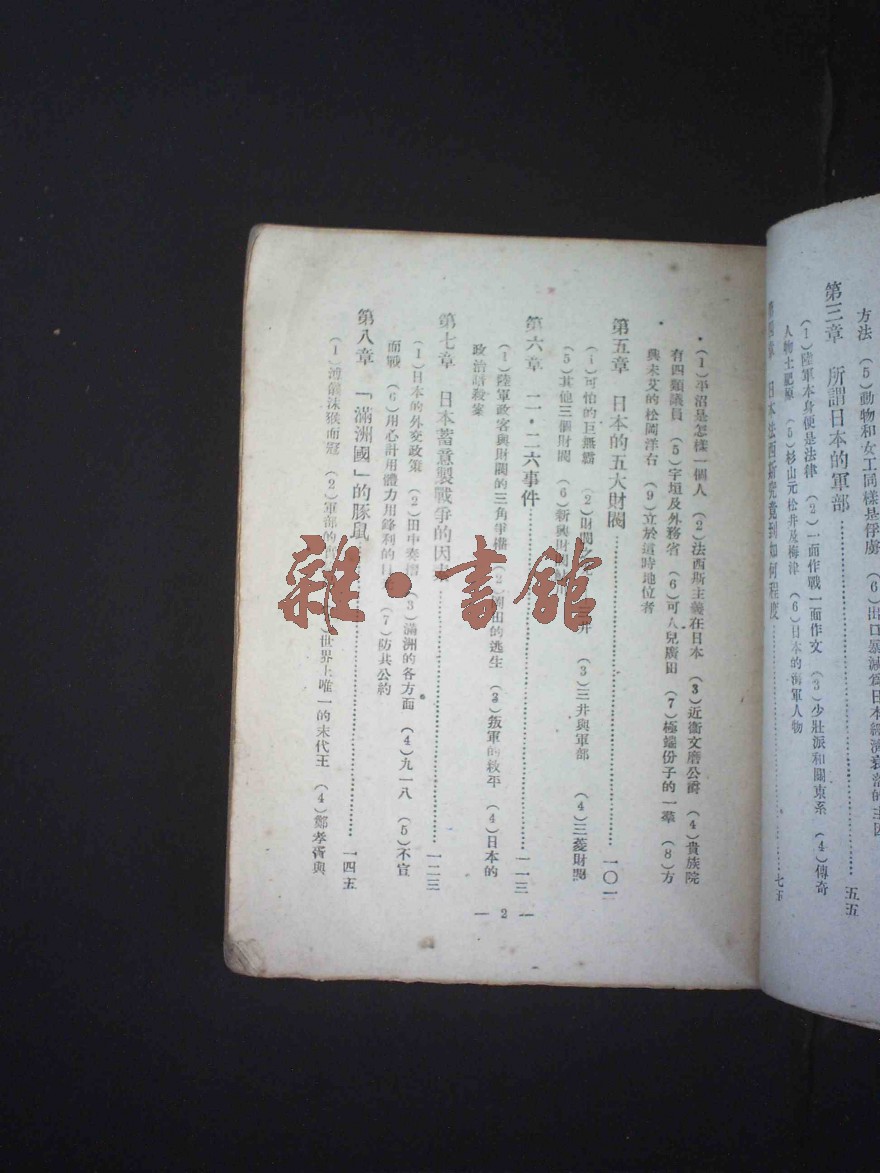 方法 (5)動物和女工同樣是俘虜 (6)出口暴減爲日本經濟衰落的主因
第三章 所謂日本的軍部………五五
(1)陸軍本身便是法律 (2)一面作戰一面作文 (3)少壯派和關東系 (4)傳奇
人物土肥原 (5)杉山元松井及梅津 (6)日本的海軍人物
第四章 日本法西斯究竟到如何程度………七五
(1)平沼是怎樣一個人 (2)法西斯主義在日本 (3)近衞文麿公爵 (4)貴族院
有四類議員 (5)宇垣及外務省 (6)可人兒廣田 (7)極端份子的一羣 (8)方
興未艾的松岡洋右 (9)立於這時地位者
第五章 日本的五大財閥………一〇一
(1)可怕的巨無霸 (2)財閥之 三井 (3)三井與軍部 (4)三菱財閥
(5)其他三個財閥 (6)新興財閥
第六章 二·二六事件………一一三
(1)陸軍政客與財閥的三角爭 (2)岡田的逃生 (3)叛軍的敉平 (4)日本的
政治暗殺案
第七章 日本蓄意製戰爭的因素………一二三
(1)日本的外交政策 (2)田中奏摺 (3)滿洲的各方面 (4)九一八 (5)不宣
而戰 (6)用心計用體力用鋒利的 (7)防共公約
第八章 「滿洲國」的豚鼠………一四五
(1)溥儀沐猴而冠 (2)軍部的 世界上唯一的末代王 (4)鄭孝胥與
— 2 —
雜·書館